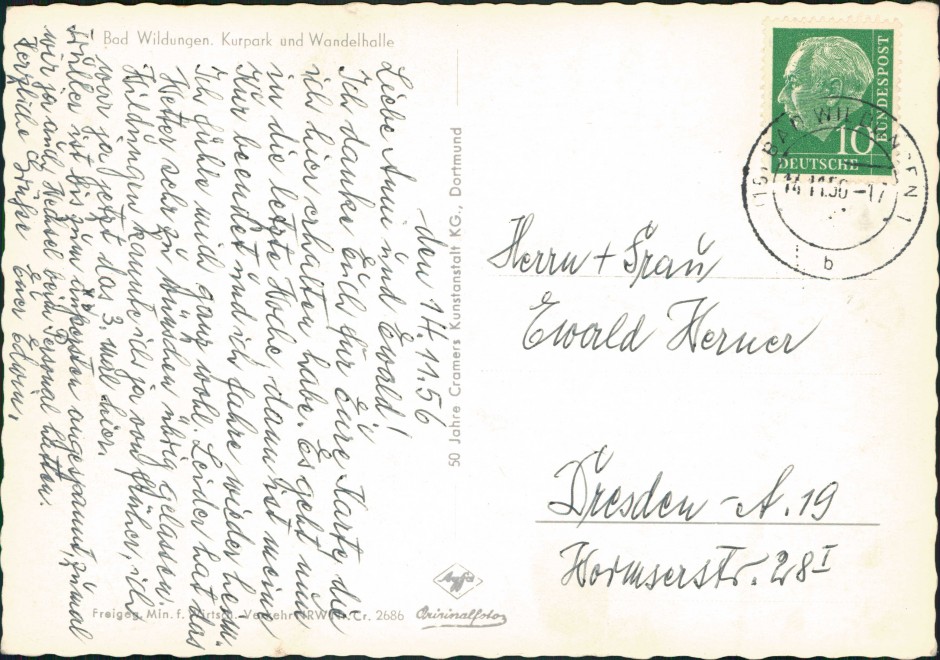 Bad Wildungen. Kurpark und Wandelhalle
den 14.11.56
Liebe Anni und Ewald!
Ich danke Euch für Eure Karte, die
ich hier erhalten habe. Es geht nun
in die letzte Woche, dann ist meine
Kur beendet und ich fahre wieder heim.
Ich fühle mich ganz wohl. Leider hat das
Wetter sehr zu wünschen übrig gelassen.
Wildungen kannte ich ja von früher, ich
war ja jetzt das 3. mal hier.
Müller ist bis zum äußersten angespannt, zumal
wir ja auch Wechsel beim Personal hatten.
Herzliche Grüße Euer Edwin.
50 Jahre Cramers Kunstanstalt KG., Dortmund
Freigeg. Min. f. Wirtsch. Verkehr NRW Nr. Cr. 2686
Agfa
Originalfoto
10
DEUTSCHE
BUNDESPOST
(16) BAD WILDUNGEN 1
14.11.56-17
b
Herrn + Frau
Ewald Werner
Dresden-A. 19
Wormserstr. 28 I